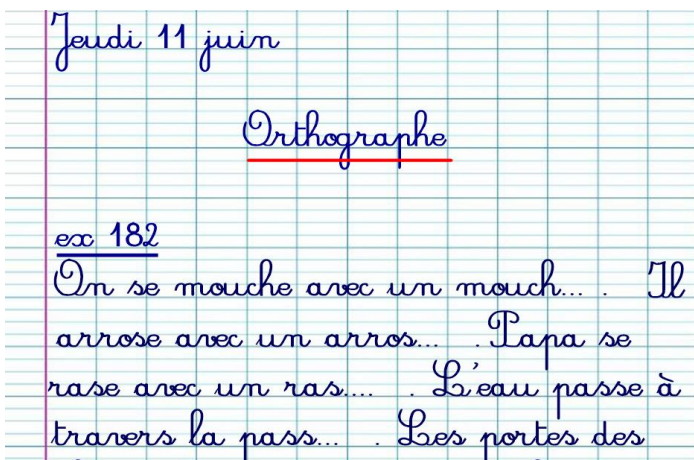 Jeudi 11 juin
Orthographe
ex 182
On se mouche avec un mouch... . Il
arrose avec un arros... . Papa se
rase avec un ras.... . L'eau passe à
travers la pass... . Les portes des